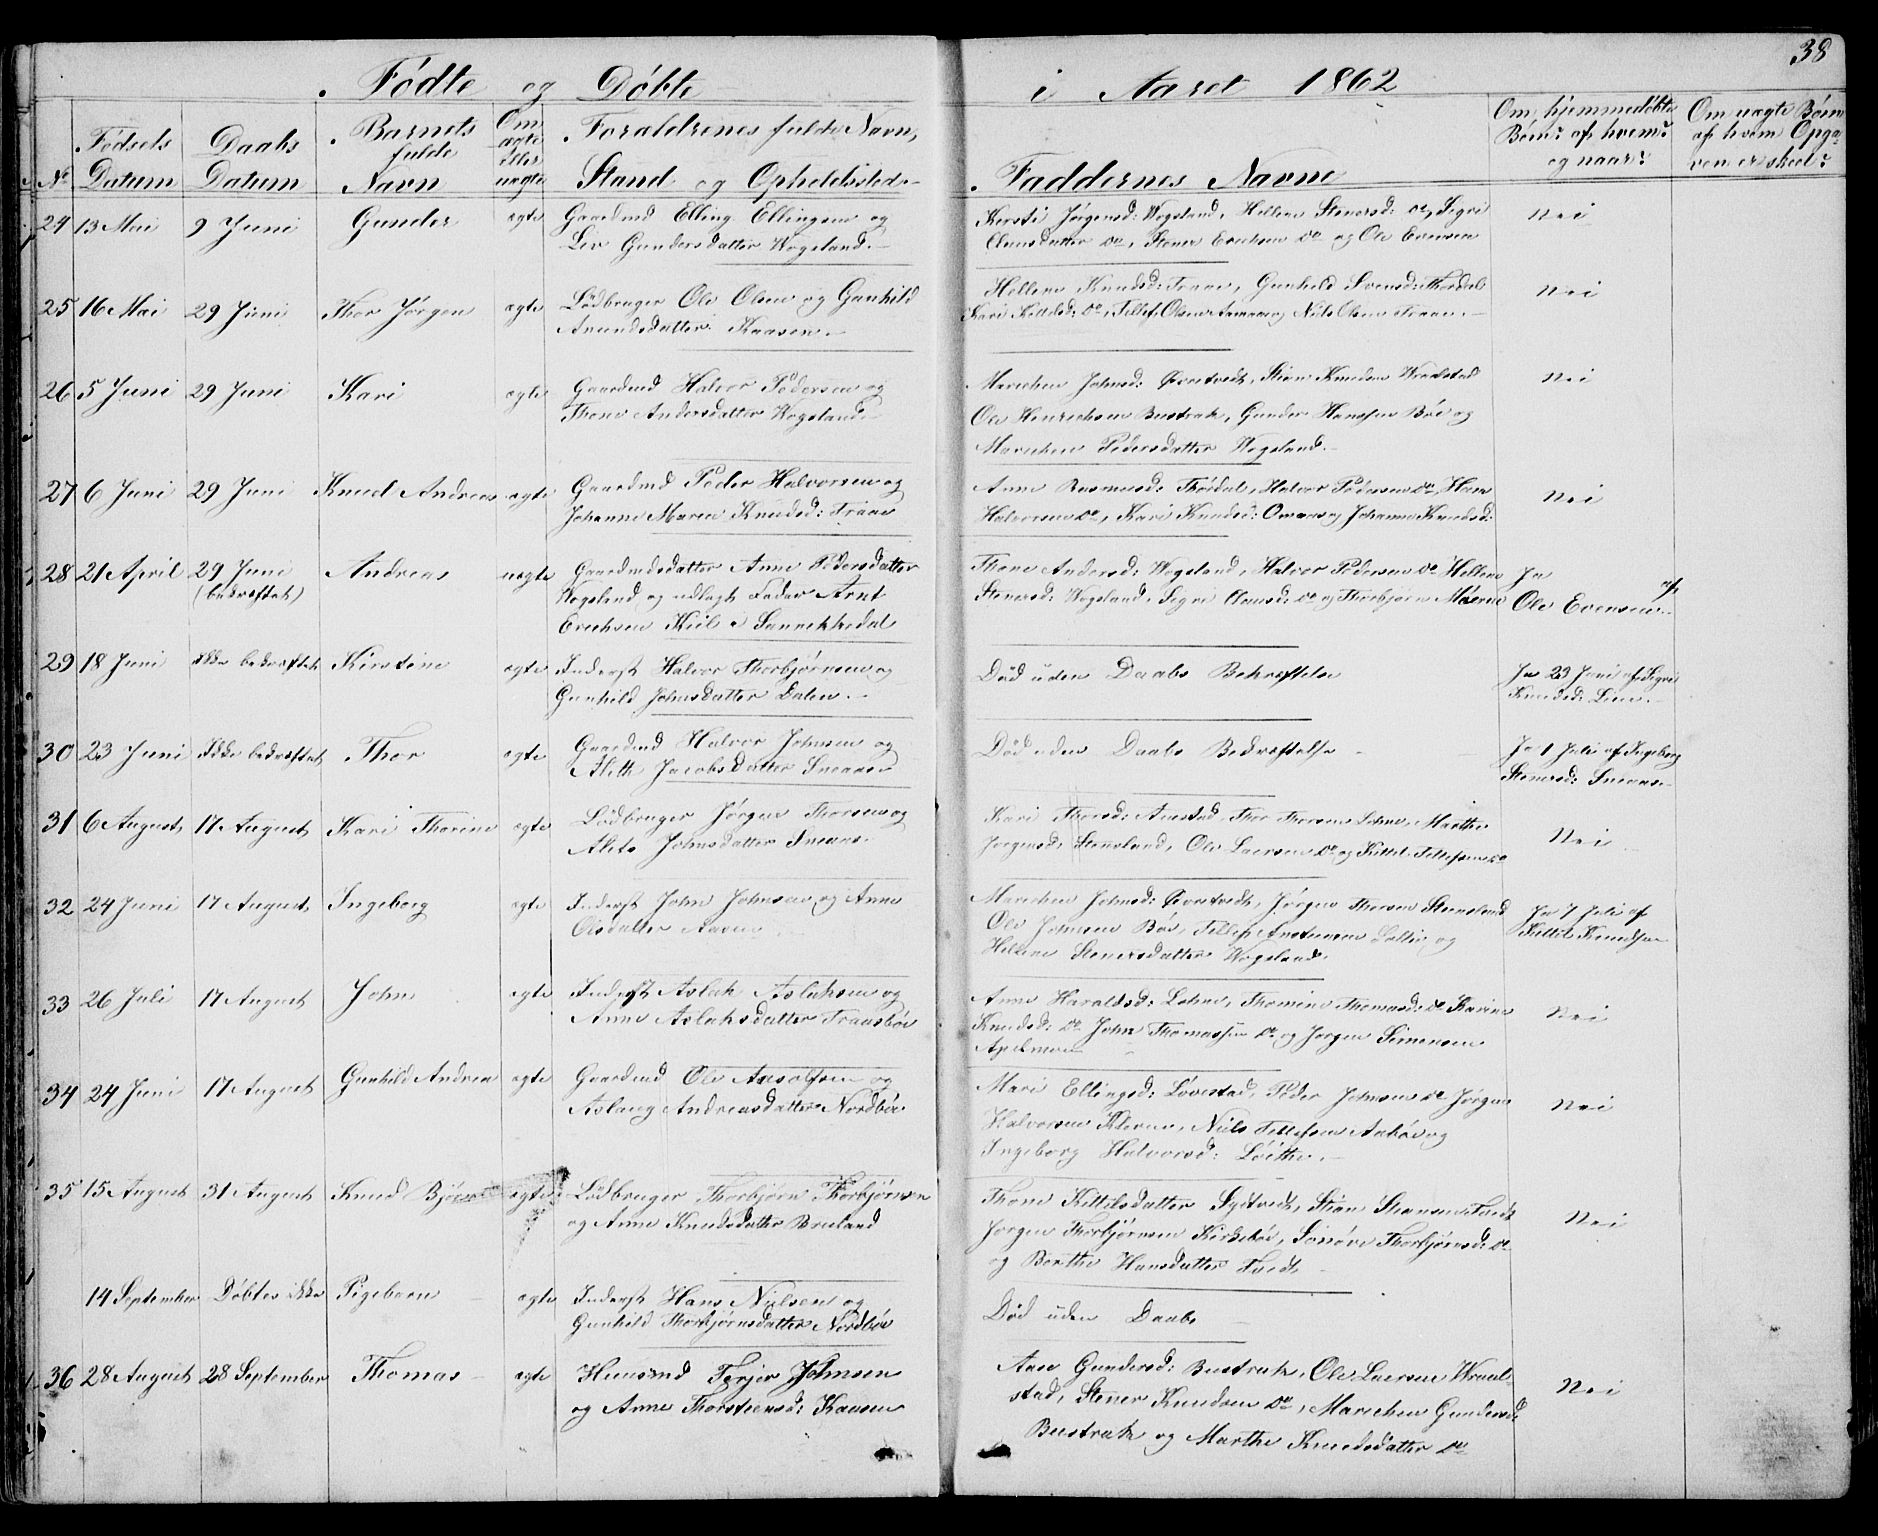 38
Fødte og Døbte i Aaret 1862
No
Fødsels Datum
Daabs Datum
Barnets fulde Navn
Om ægte eller uægte
Forældrenes fulde Navn, Stand og Opholdssted
Faddernes Navne
Om hjemmedøbte Børn: af hvem? og naar?
Om uægte Børn af hvem Opgaven er skeet?
24 13 Mai 9 Juni Gunder ægte Gaardmd Elling Ellingsen og
Liv Gundersdatter Wogsland.
Kersti Jørgensd: Wogsland, Hellene Stenersd: do, Sigri
Olausdatter do, Stener Erichsen do og Ole Evensen
Nei
25 16 Mai 29 Juni Thor Jørgen ægte Lødbruger Ole Olsen og Gunhild
Amundsdatter Kaasen.
Hellene Knudsd: Traae, Gunhild Svensd: Thordal
Kari Kittelsd: do, Tellef Olsen og Niels Olsen Traae.
Nei
26 5 Juni 29 Juni Kari ægte Gaardmd Halvor Pedersen og
Thone Andersdatter Wogsland.
Marichen Johnsd: Øvretvedt, Stian Knudsen Wraalstad
Ole Henrichsen Bustrak, Gunder Hanssen Bøe og
Marichen Pedersdatter Wogsland.
Nei
27 6 Juni 29 Juni Knud Andreas ægte Gaardmd Peder Halvorsen og
Johanne Maren Knudsd: Traae
Anne Rasmusd: Thordal, Halvor Pedersen do, Hans
Halvorsen do, Kari Knudsd: og Johanne Knudsd:
Nei
28 21 April 29 Juni Andreas uægte Gaardmdsdatter Anne Pedersdatter
(bekræftet)
Wogsland og udlagt Fader Arnt
Erichsen Kiil i Sannikedal
Thone Andersd: Wogsland, Halvor Pedersen do Hellene
Stenersd: Wogsland, Sigri Olausd: do og Thorbjørn Moerne
Ja af
Ole Evensen
29 18 Juni Ikke bekræftet Kirstine ægte Inderst Halvor Thorbjørnsen og
Gunhild Johnsdatter Dalen.
Død uden Daabs Bekræftelse
Ja 23 Juni af Sigri
Knudsd: Lien.
30 23 Juni Ikke bekræftet Thor ægte Gaardmd Halvor Johnsen og
Aleth Jacobsdatter Sneaas
Død uden Daabs Bekræftelse
Ja 1 Juli af Ingeborg
Stenersd: Sneaas
31 6 August 17 August Kari Thorine ægte Lødbruger Jørgen Thorsen og
Alete Johnsdatter Sneaas.
Kari Thorsd: Aanstad Thor Thorsen Lohne, Marthe
Jørgensd: Stensland, Ole Laersen do og Kittil Tellefsen do
Nei
32 24 Juni 17 August Ingeborg ægte Inderst John Johnsen og Anne
Olsdatter
Marichen Johnsd: Øvretvedt, Jørgen Thorsen Stensland
Ole Johnsen Bøe, Tellef og
Hellene Stenersdatter Wogsland.
Ja 7 Juli af
Kittil Knudsen
33 26 Juli 17 August John ægte Inderst Aslak Aslaksen og
Anne Aslaksdatter Traasbøe
Anne Haraldsd: Lohne, Thomine Thomasd: do Karine
Knudsd: do John Thomassen do og Jørgen Simensen
Apelmoen
Nei
34 24 Juni 17 August Gunhild Andrea ægte Gaardmd Ole Aasolfsen og
Aslaug Andreasdatter Nordbøe
Mari Ellingsd: Løvestad, Peder Johnsen do Jørgen
Halvorsen Kleven, Niels Tellefsen Aabøe og
Ingeborg Halvorsd: Løithe.
Nei
35 15 August 31 August Knud Bjørn ægte Lødbruger Thorbjørn Thorbjørnsen
og Anne Knudsdatter Breland
Thone Kittilsdatter Systvedt, Stian Stiansen Tvedt
Jørgen Thorbjørnsen Kirkebøe, Sønøve Thorbjørnsd: do
og Berthe Hansdatter Tvedt
Nei
14 September Døbtes ikke Pigebarn ægte Inderst Hans Nielsen og
Gunhild Thorbjørnsdatter Nordbøe
Død uden Daab
36 28 August 28 September Thomas ægte Huusmd Terjer Johnsen
og Anne Thorstensd: Kaasen
Aase Gundersd: Bustrak, Ole Laersen Wraal-
stad, Stener Knudsen do, Marichen Gundersd:
Bustrak og Marthe Knudsdatter do
Nei